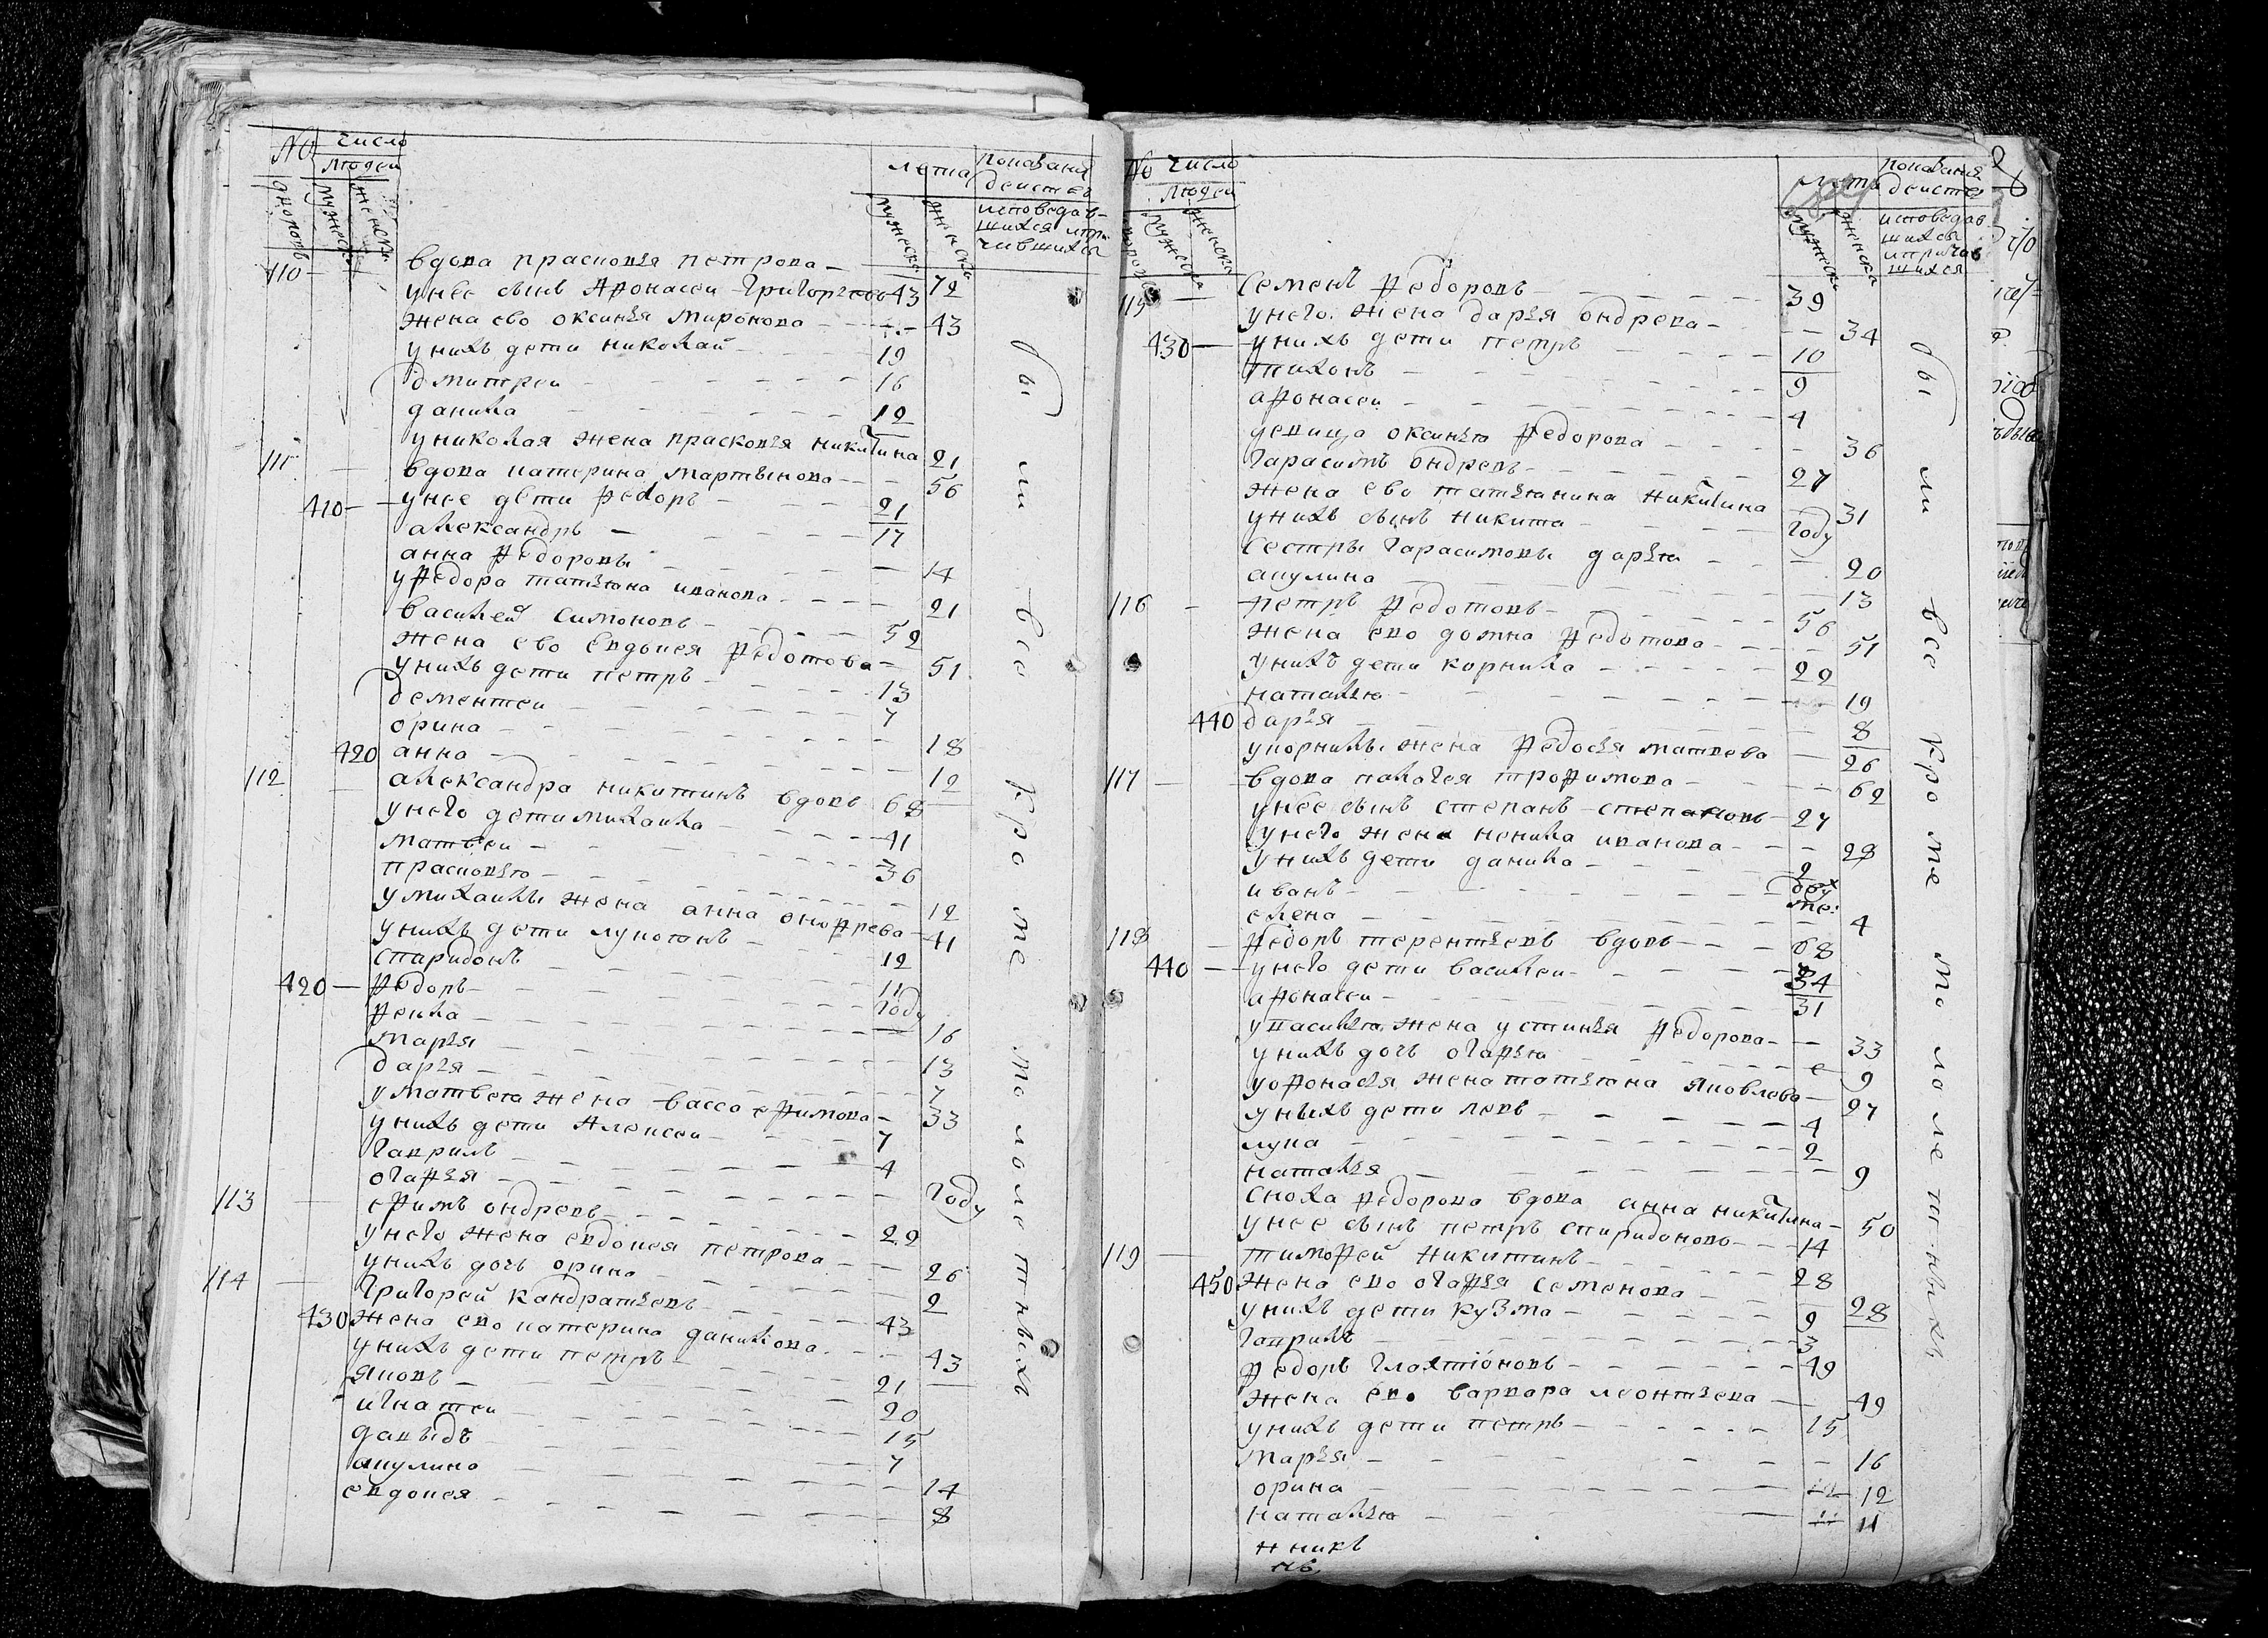 № число
людей
лета
показание
действъ
дворовъ
мужеска
женска
мужеска
женска
исповедав-
шихся и при-
чившихся
110 вдова прасковья петрова 72
у нее сынъ Афонасеи Григорьевъ 43
жена ево оксинья миронова 43
у нихъ дети николай 19
дмитреи 16
данила 12
у николая жена прасковья никитина 21
111 вдова катерина мартынова 56
410 у нее дети федоръ 21
александръ 17
анна федоровы 14
у федора татьяна иванова 21
василей симоновъ 52
жена ево Евдокея федотова 51
у нихъ дети петръ 13
дементеи 7
орина 18
420 анна 12
112 александра никитинъ вдовъ 68
у него дети михаила 41
матвеи 36
прасковья 12
у михаилы жена анна онофрева 41
у нихъ дети лупоганъ 12
спиридонъ 11
420 федоръ году
фекла 16
марья 13
дарья 7
у матвея жена васса ефимова 33
у нихъ дети Алексеи 7
гаврилъ 4
огафья году
113 ефимъ ондревъ 22
у него жена евдокея петрова 26
у нихъ дочь орина 2
114 Григорей кандратьевъ 43
430 жена ево катерина данилова 43
у нихъ дети петръ 21
яковъ 20
игнатеи 15
давыдъ 7
акулина 14
евдокея 8
были все кроме малолетныхъ
№ число
людей
лета
показание
действ
мужеска
женска
мужеска
женска
исповедав
шихся
и причав
шихся
115 Семенъ федоровъ 39
у него жена дарья ондрева 34
430 у нихъ дети петръ 10
тихонъ 9
афонасеи 4
девица оксинья федорова 36
Гарасимъ ондревъ 27
жена ево татьянина никитина 31
у нихъ сынъ никита году
Сестры гарасимовы дарья 20
акулина 13
116 петръ федотовъ 56
жена ево домна федотова 51
у нихъ дети корнила 22
наталья 19
440 дарья 8
у корнилы жена федосья матвева 26
117 вдова палагея трофимова 62
у нее сынъ степанъ степановъ 27
у него жена ненила иванова 28
у нихъ дети данила 2
иванъ
елена 4
118 федоръ терентьевъ вдовъ 68
440 у него дети василеи 34
афонасеи 31
у василья жена устинья федорова 33
у нихъ дочь огафья 9
у офонасья жена татьяна яковлева 27
у ныхъ дети левъ 4
лука 2
наталья 9
сноха федорова вдова анна никитина 50
у нее сынъ петръ спиридоновъ 14
119 тимофей никитинъ 28
450 жена ево огафья семенова 28
у нихъ дети кузма 9
гаврилъ 3
федоръ глахтионовъ 49
жена ево варвара леонтьева 49
у нихъ дети петръ 15
марья 16
орина 12
наталья 11
были все кроме малолетныхъ